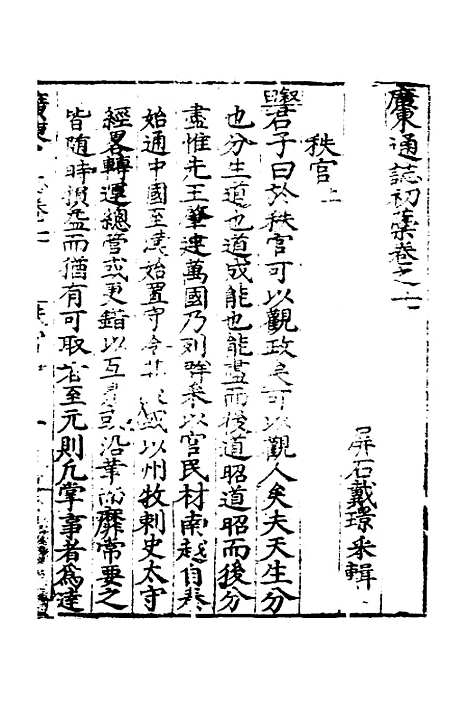 廣東通誌初藁卷之七
屏石戴璟采輯
秩官上
君子曰於秩官可以觀政矣可以觀人矣夫天生分
也分生道也道成能也能盡而後道昭道昭而後分
盡惟先王肇建萬國乃列群采以官民材南越自秦
始通中國至漢始置守令其以州牧刺史太守
經畧轉運總管或更錯以互或沿革而靡常要之
皆随時損益而猶有可取者至元則凡掌事者為達